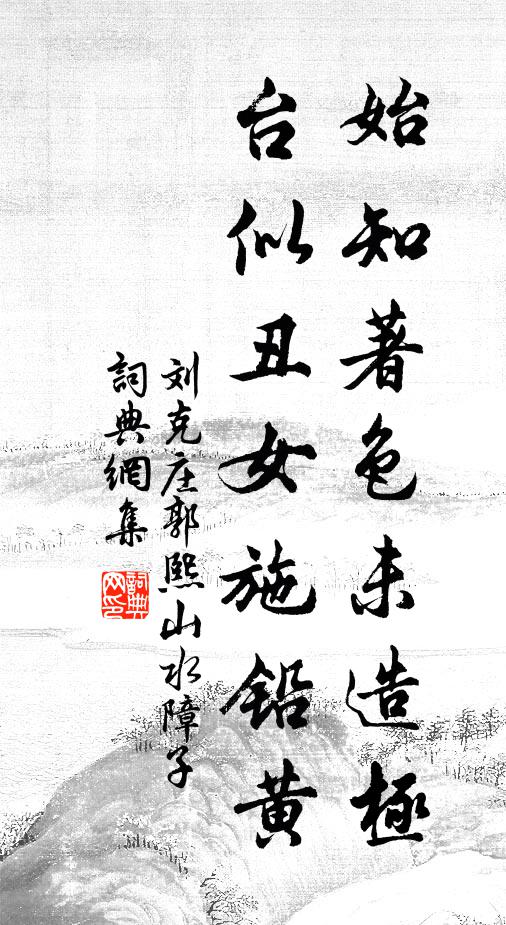 始知著色未造極
台似丑女施鉛黄
刘克庄郭熙山水障子
詞典網集
詞典網印